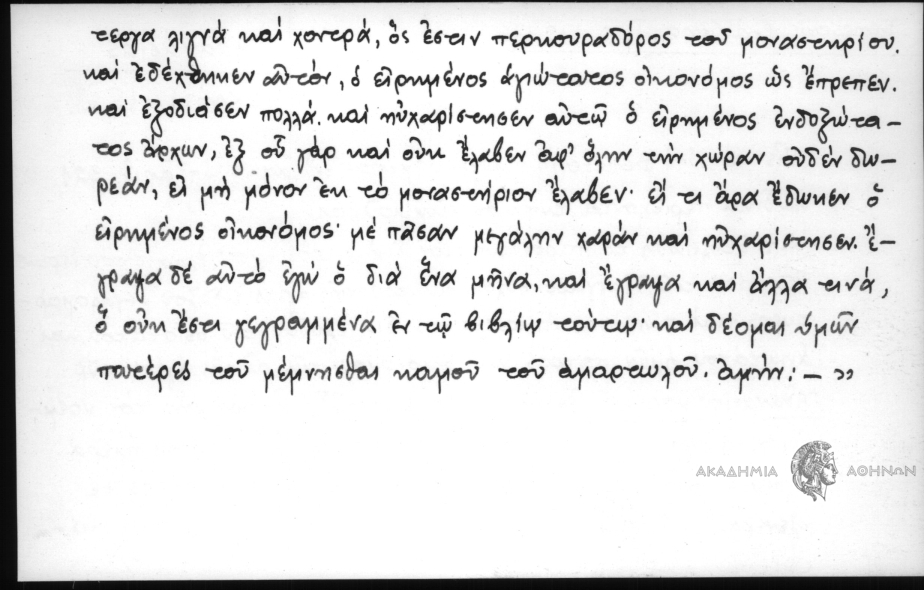 τεργα λιγνά καί χοντρά, ὅς ἔστιν περκουραδόρος τοῦ μοναστηρίου.
καί ἐδέχθηκεν αὐτόν, ὁ εἰρημένος ἁγιώτατος οἰκονόμος ὡς ἔπρεπεν.
καί ἐξοδιάσεν πολλά. καί ηὐχαρίστησεν αὐτῷ ὁ εἰρημένος ἐνδοξώτα-
τος ἄρχων, ἐξ οὗ γάρ καί οὐκ ἔλαβεν ἀφ' ὅλην τήν χώραν οὐδέν δω-
ρεάν, εἰ μή μόνον ἐκ τό μοναστήριον ἔλαβεν· εἴ τι ἄρα ἔδωκεν ὁ
εἰρημένος οἰκονόμος· μέ πᾶσαν μεγάλην χαράν καί ηὐχαρίστησεν. Ἔ-
γραψα δέ αὐτό ἐγώ ὁ διά ἕνα μῆνα, καί ἔγραψα καί ἄλλα τινά,
ὅ οὐκ ἔστι γεγραμμένα ἐν τῷ βιβλίῳ τούτῳ· καί δέομαι ὑμῶν
πατέρες τοῦ μέμνησθαι καμοῦ τοῦ ἁμαρτωλοῦ. ἀμήν: — »
ΑΚΑΔΗΜΙΑ ΑΘΗΝΩΝ